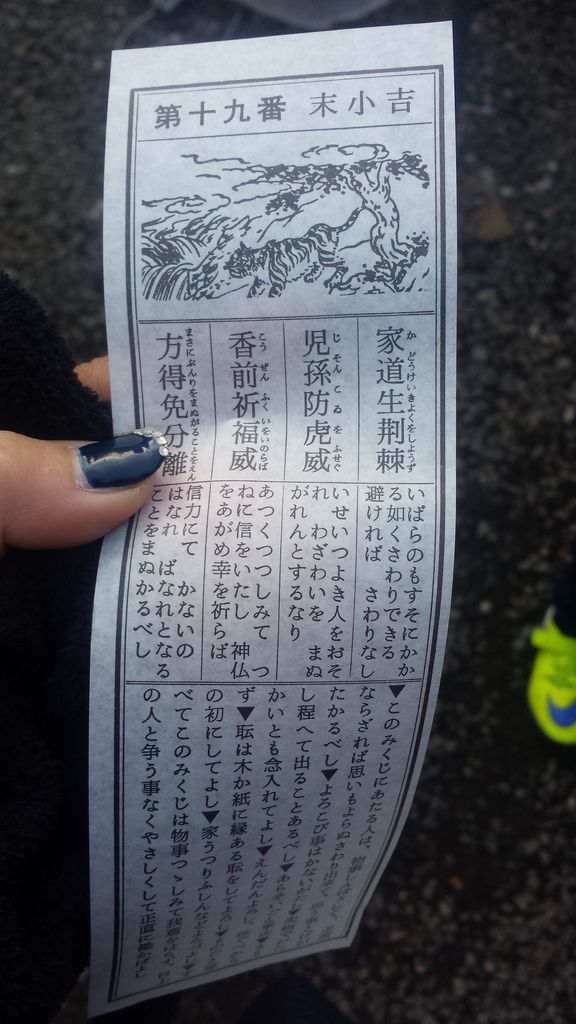 第十九番 末小吉
家道生荊棘
かどうけいきよくをしようず
児孫防虎威
じそんこゐをふせぐ
香前祈福威
こうぜんふくいをいのらば
方得免分離
まさにぶんりをまぬがることをえん
いばらのもすそにかか
る如くさわりできる
避ければ さわりなし
いせいつよき人をおそ
れ わざわいを まぬ
がれんとするなり
あつくつつしみて つ
ねに信をいたし 神仏
をあがめ幸を祈らば
信力にて かないの
はなれ ばなれとなる
ことをまぬかるべし
▼このみくじにあたる人は、物事
ならざれば思いもよらぬさわり出来て
たかるべし▼よろこび事はかないがたし
し程へて出ることあるべし▼あらそい
かいとも念入れてよし▼えんだんよろし
ず▼畑は木か紙に縁ある
の初にしてよし▼家うつりふしんなどよろし
べてこのみくじは物事つゝしみて我意をはらず
の人と争う事なくやさしくして正直に働かばよし